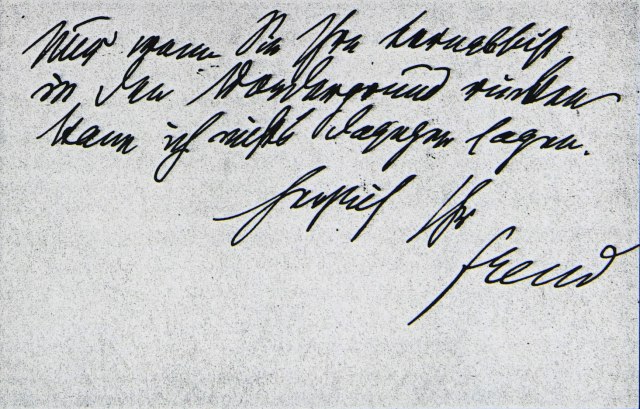 Nur wenn Sie Ihre Lernabsicht
in den Vordergrund rücken
kann ich nichts dagegen sagen.
Herzlich Ihr
Freud